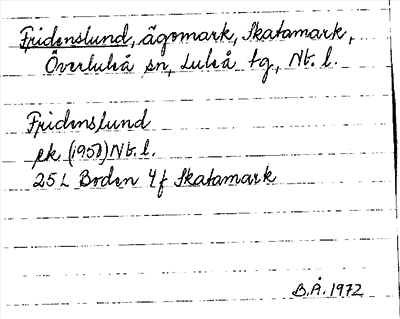 Fridenslund, ägomark, Skatamark,
Överluleå sn, Luleå tg, Nb. l.
Fridenslund
ek. (1957) Nb. l.
25 L Boden 4f Skatamark
B.Å. 1972